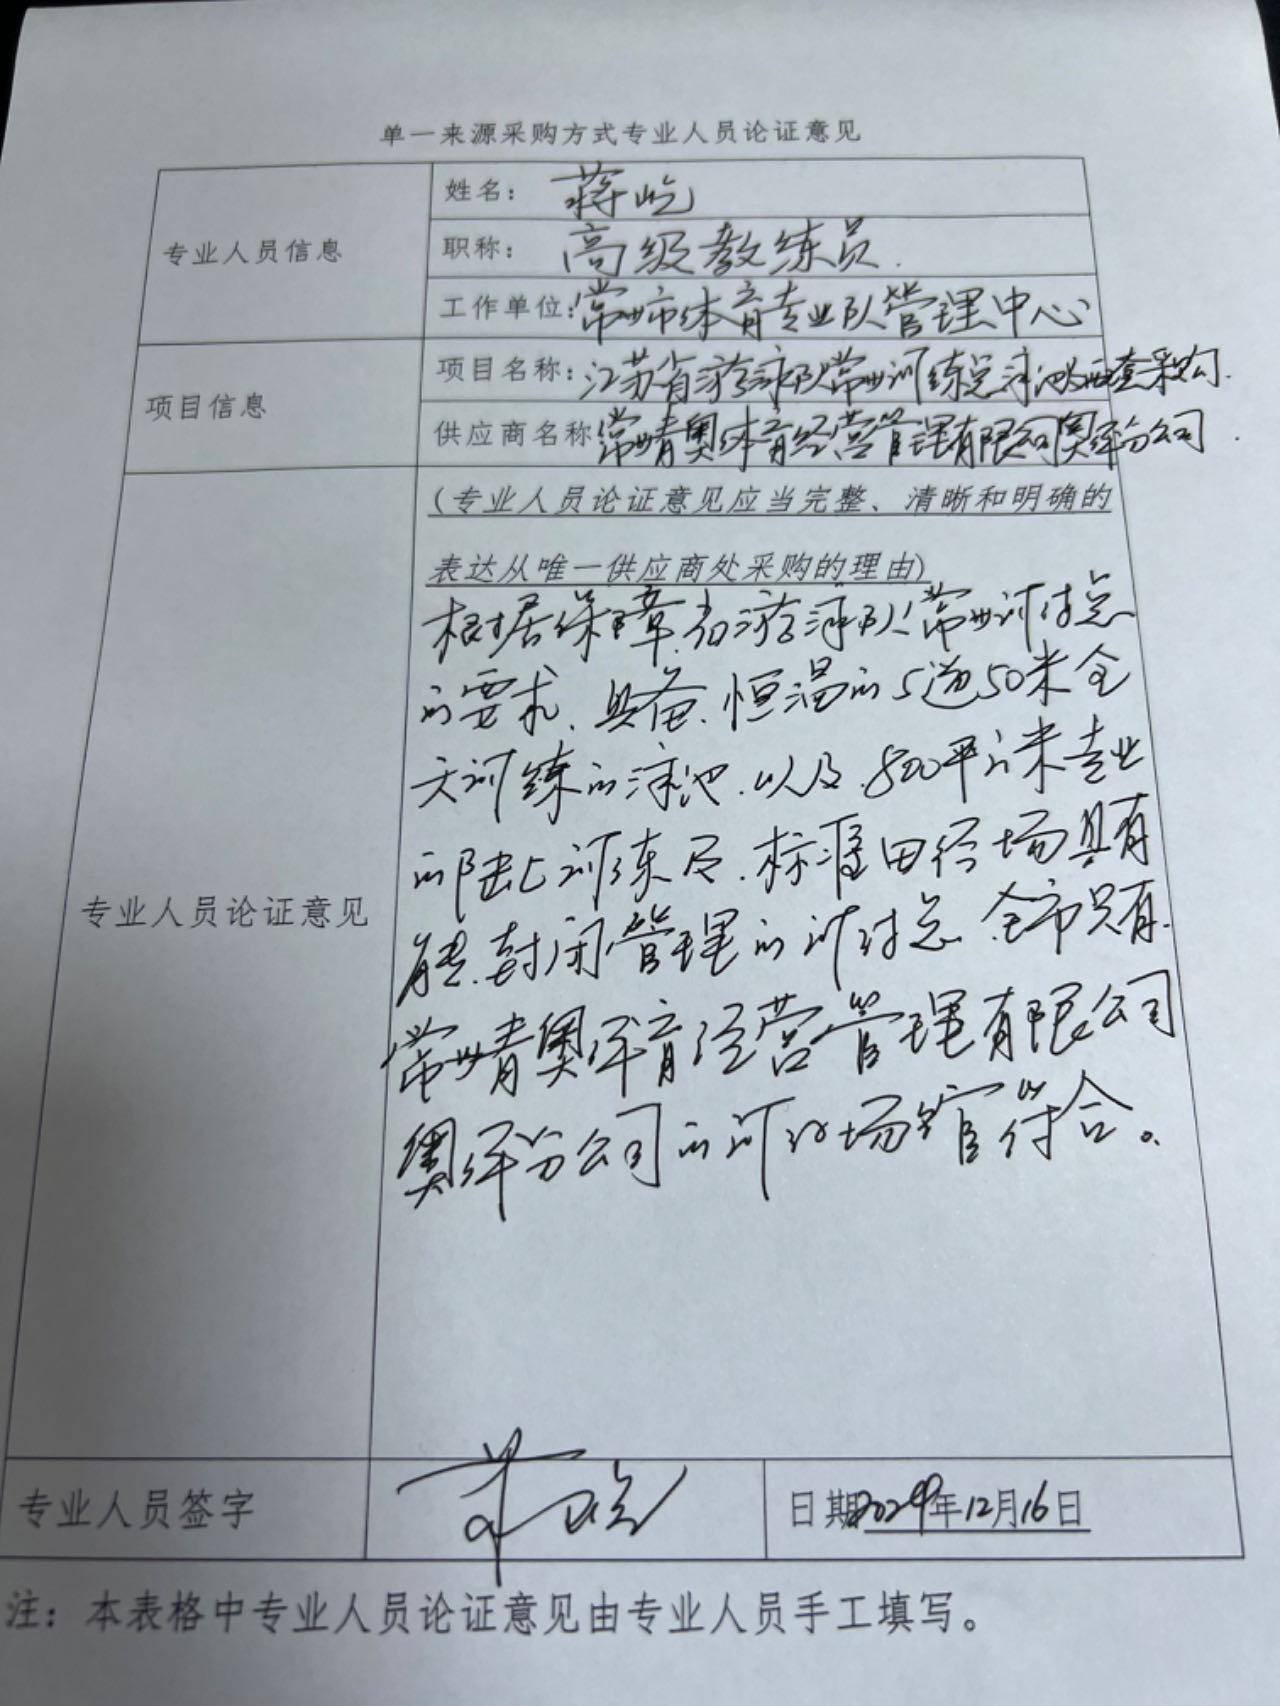 单一来源采购方式专业人员论证意见
专业人员信息
姓名：蒋屹
职称：高级教练员.
工作单位：常州市体育专业队管理中心
项目信息
项目名称：江苏省游泳队常州训练点泳池 采购.
供应商名称 常州青奥体育经营管理有限公司奥体分公司.
（专业人员论证意见应当完整、清晰和明确的
表达从唯一供应商处采购的理由）
专业人员论证意见
根据保障省游泳队常州训练点
的要求、具备、恒温的5道50米全
天训练的泳池.以及.800平方米专业
的陆上训练房.标准田径场具有
能封闭管理的训练点.全市只有.
常州青奥体育经营管理有限公司
奥体分公司的训练场馆符合。
专业人员签字
蒋屹
日期2024年12月16日
注：本表格中专业人员论证意见由专业人员手工填写。